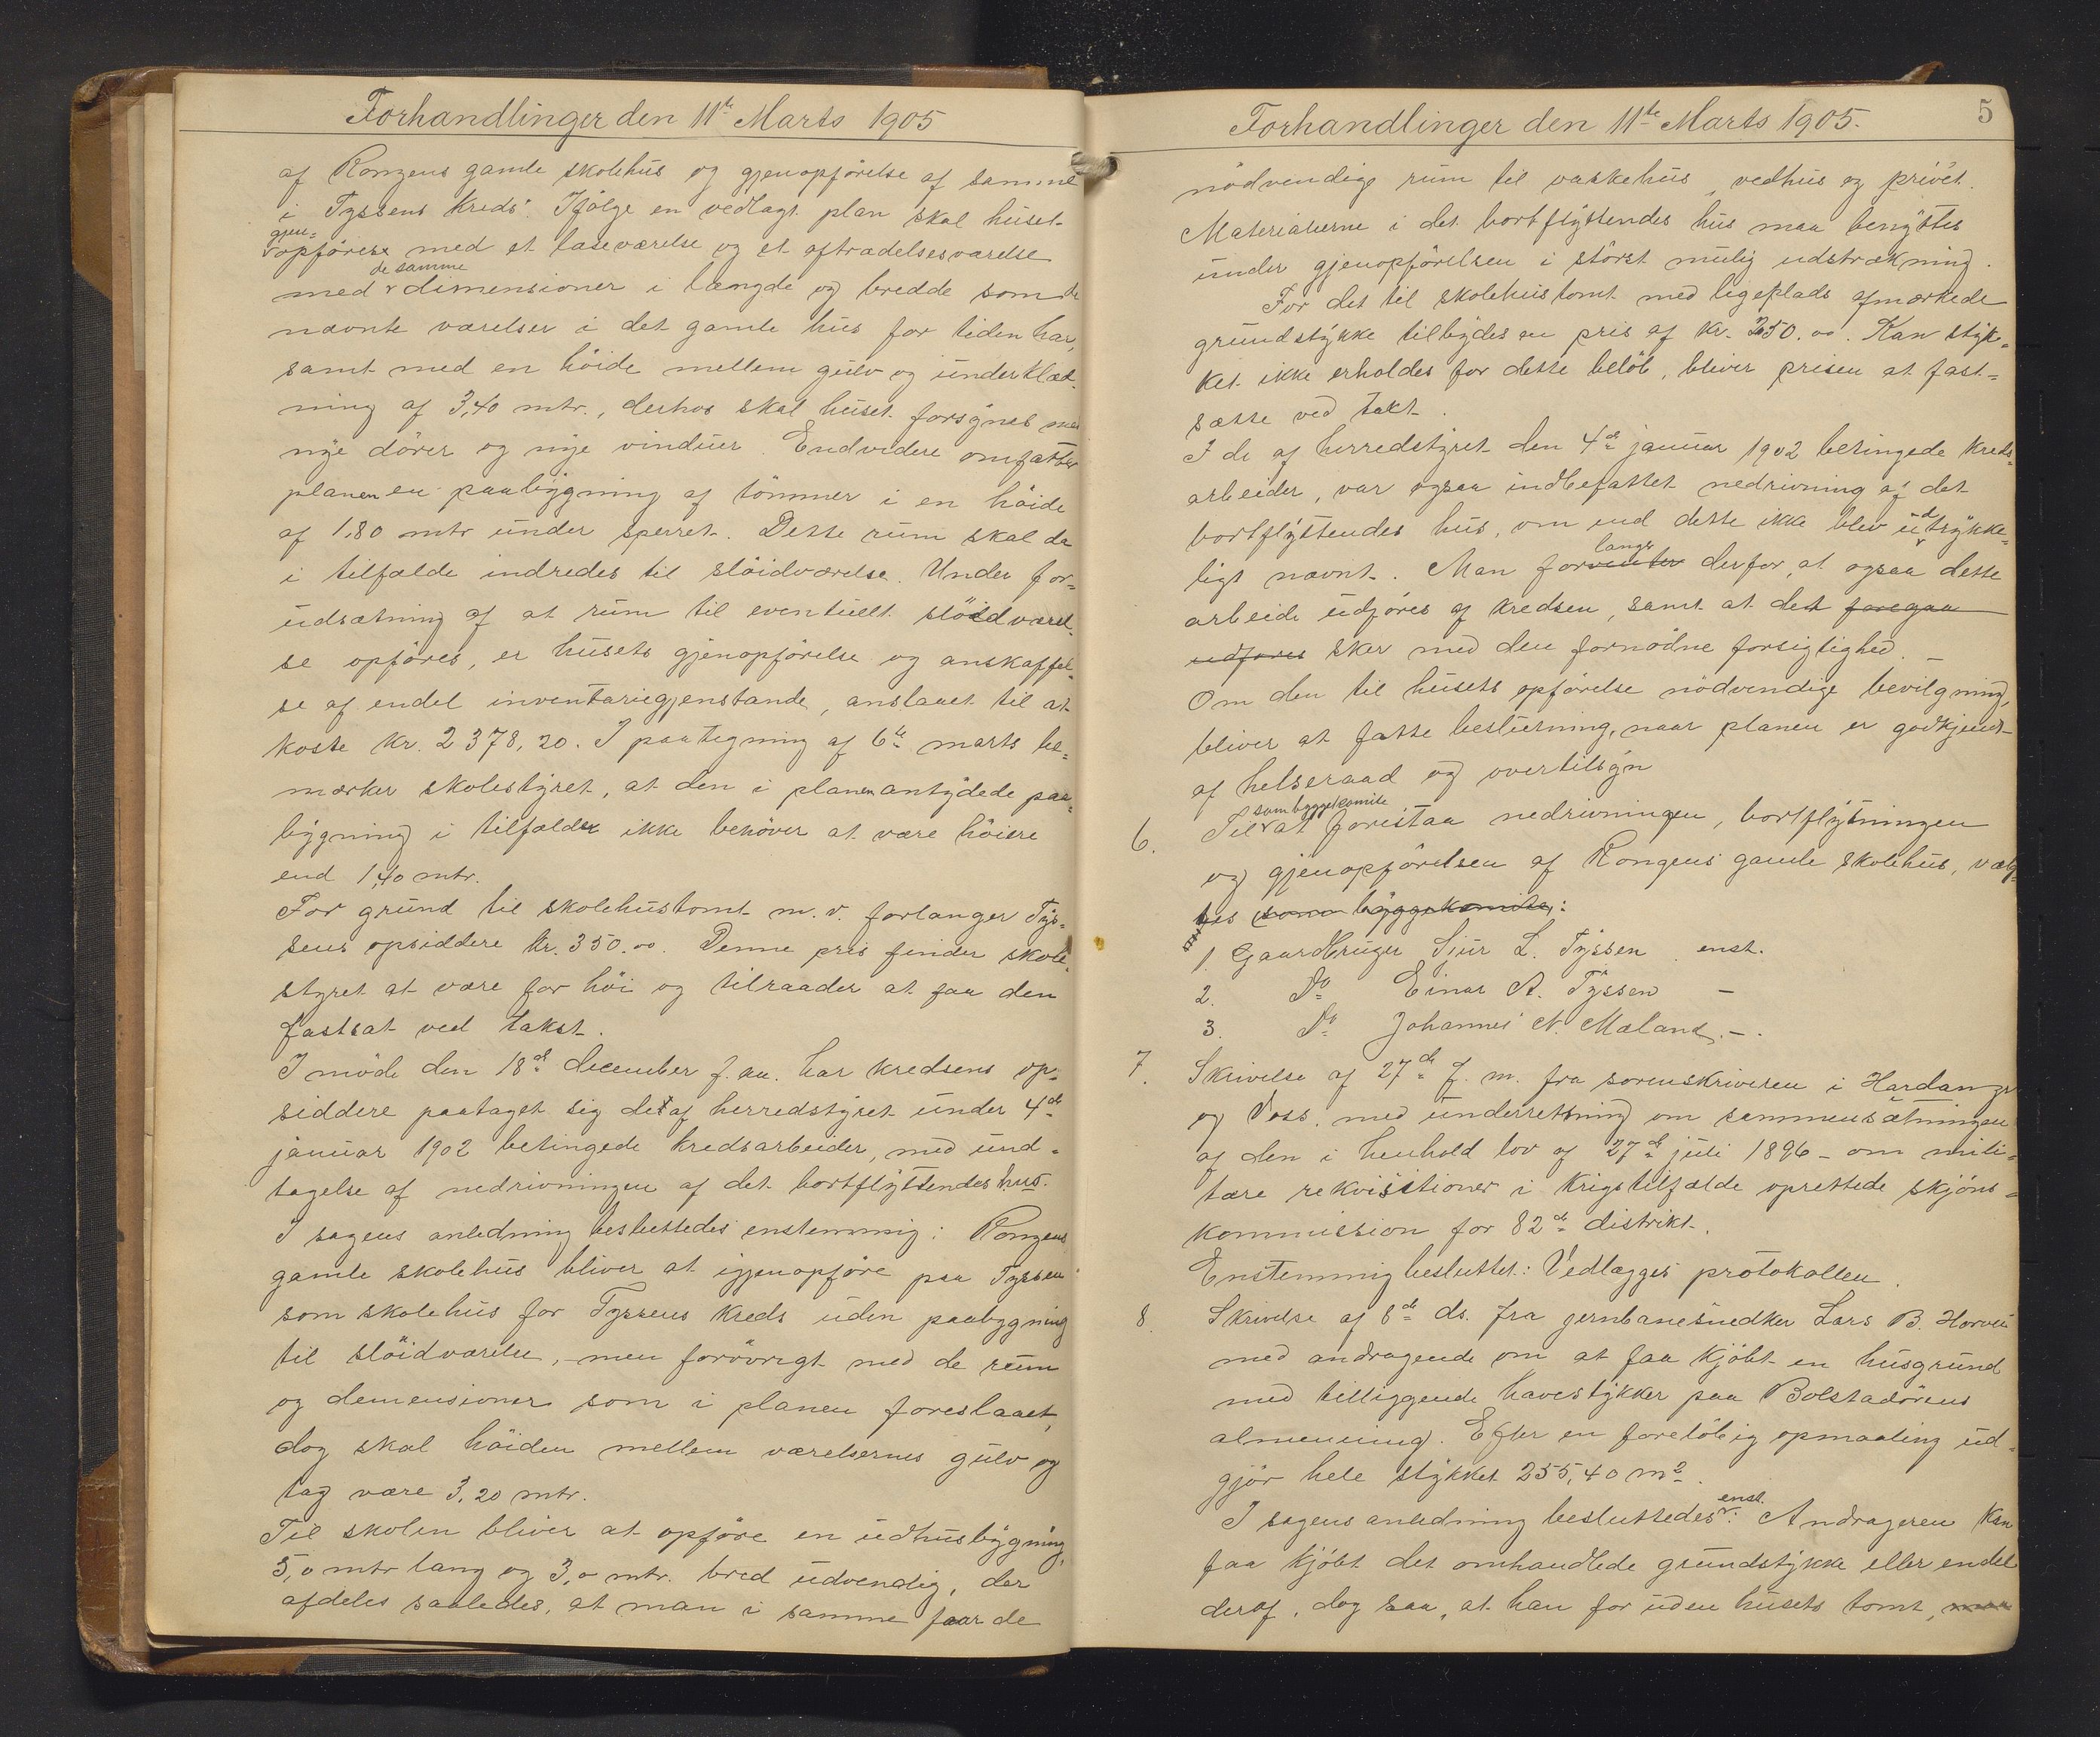 Forhandlinger den 11te Marts 1905
af Rongens gamle skolehus og gjenopförelse af samme
i Tyssens kreds. Ifölge en vedlagt plan skal huset
gjen-
opföres med et læseværelse og et aftrædelsesværelse
de samme
med dimensioner i længde og bredde som de
nævnte værelser i det gamle hus for tiden har,
samt med en höide mellem gulv og underklæd-
ning af 3,40 mtr., derhos skal huset forsynes med
nye dörer og nye vinduer. Endvidere omfatter
planen en paabygning af tömmer i en höide
af 1,80 mtr under sperret. Dette rum skal da
i tilfælde indredes til slöidværelse. Under for-
udsætning af at rum til eventuelt slöidværel-
se opföres, er husets gjenopförelse og anskaffel-
se af endel inventariegjenstande, anslaaet til at
koste kr. 2378,20. I paategning af 6te marts be-
mærker skolestyret, at den i planen antydede paa-
bygning i tilfælde ikke behöver at være höiere
end 1,40 mtr.
For grund til skolehustomt m.v. forlanger Tys-
sens opsiddere kr. 350.00. Denne pris finder skole-
styret at være for höi og tilraader at faa den
fastsat ved takst.
I möde den 18de december f. aa. har kredsens op-
siddere paataget sig det af herredstyret under 4de
januar 1902 betingede kredsarbeider, med und-
tagelse af nedrivningen af det bortflyttendes hus.
I sagens anledning besluttedes enstemmig: Rongens
gamle skolehus bliver at igjenopföre paa Tyssen
som skolehus for Tyssens kreds uden paabygning
til slöidværelse, men forövrigt med de rum
og demensioner som i planen foreslaaet,
dog skal höiden mellem værelsernes gulv og
tag være 3,20 mtr.
Til skolen bliver at opföre en udhusbygning,
5,0 mtr lang og 3,0 mtr. bred udvendig, der
afdeles saaledes, at man i samme faar de
Forhandlinger den 11te Marts 1905.
5
nödvendige rum til vaskehus, vedhus og privét.
Materialierne i det bortflyttendes hus maa benyttes
under gjenopförelsen i störst mulig udstrækning.
For det til skolehustomt med legeplads afmærkede
grundstykke tilbydes en pris af kr. 250.00. Kan styk-
ket ikke erholdes for dette belöb, bliver prisen at fast-
sætte ved takt.
I de af herredstyret den 4de januar 1902 betingede kreds-
arbeider, var ogsaa indbefattet nedrivning af det
bortflyttendes hus, om end dette ikke blev udtrykke-
ligt nævnt. Man forventer derfor, at ogsaa dette
langer
arbeide udföres af kredsen, samt at det foregaa
udföres sker med den fornödne forsigtighed.
Om den til husets opförelse nödvendige bevilgning,
bliver at fatte beslutning, naar planen er godkjendt
af helseraad og overtilsyn
som byggekomite
6. Til at forestaa nedrivningen, bortflytningen
og gjenopförelsen af Rongens gamle skolehus, valg-
tes som byggekomite,:
1. Gaardbruger Sjur L. Tyssen enst.
2. Do Einar A. Tyssen –
3. Do Johannes N. Mæland. –.
7. Skrivelse af 27de f. m. fra sorenskriveren i Hardanger
og Voss, med underretning om sammensætningen
af den i henhold lov af 27de juli 1896 – om mili-
tære rekvisitioner i krigstilfælde oprettede skjöns-
kommission for 82de distrikt.
Enstemmig besluttet: Vedlægges protokollen.
8. Skrivelse af 8de ds. fra jernbanesnedker Lars B. Horvei
med andragende om at faa kjöbt en husgrund
med tilliggende havestykker paa Bolstadörens
almenning. Efter en forelöbig opmaaling ud-
gjör hele stykket 255,40 m2.
enst.
I sagens anledning besluttedes: Andrageren kan
faa kjöbt det omhandlede grundstykke eller endel
deraf, dog saa, at han for uden husets tomt, maa